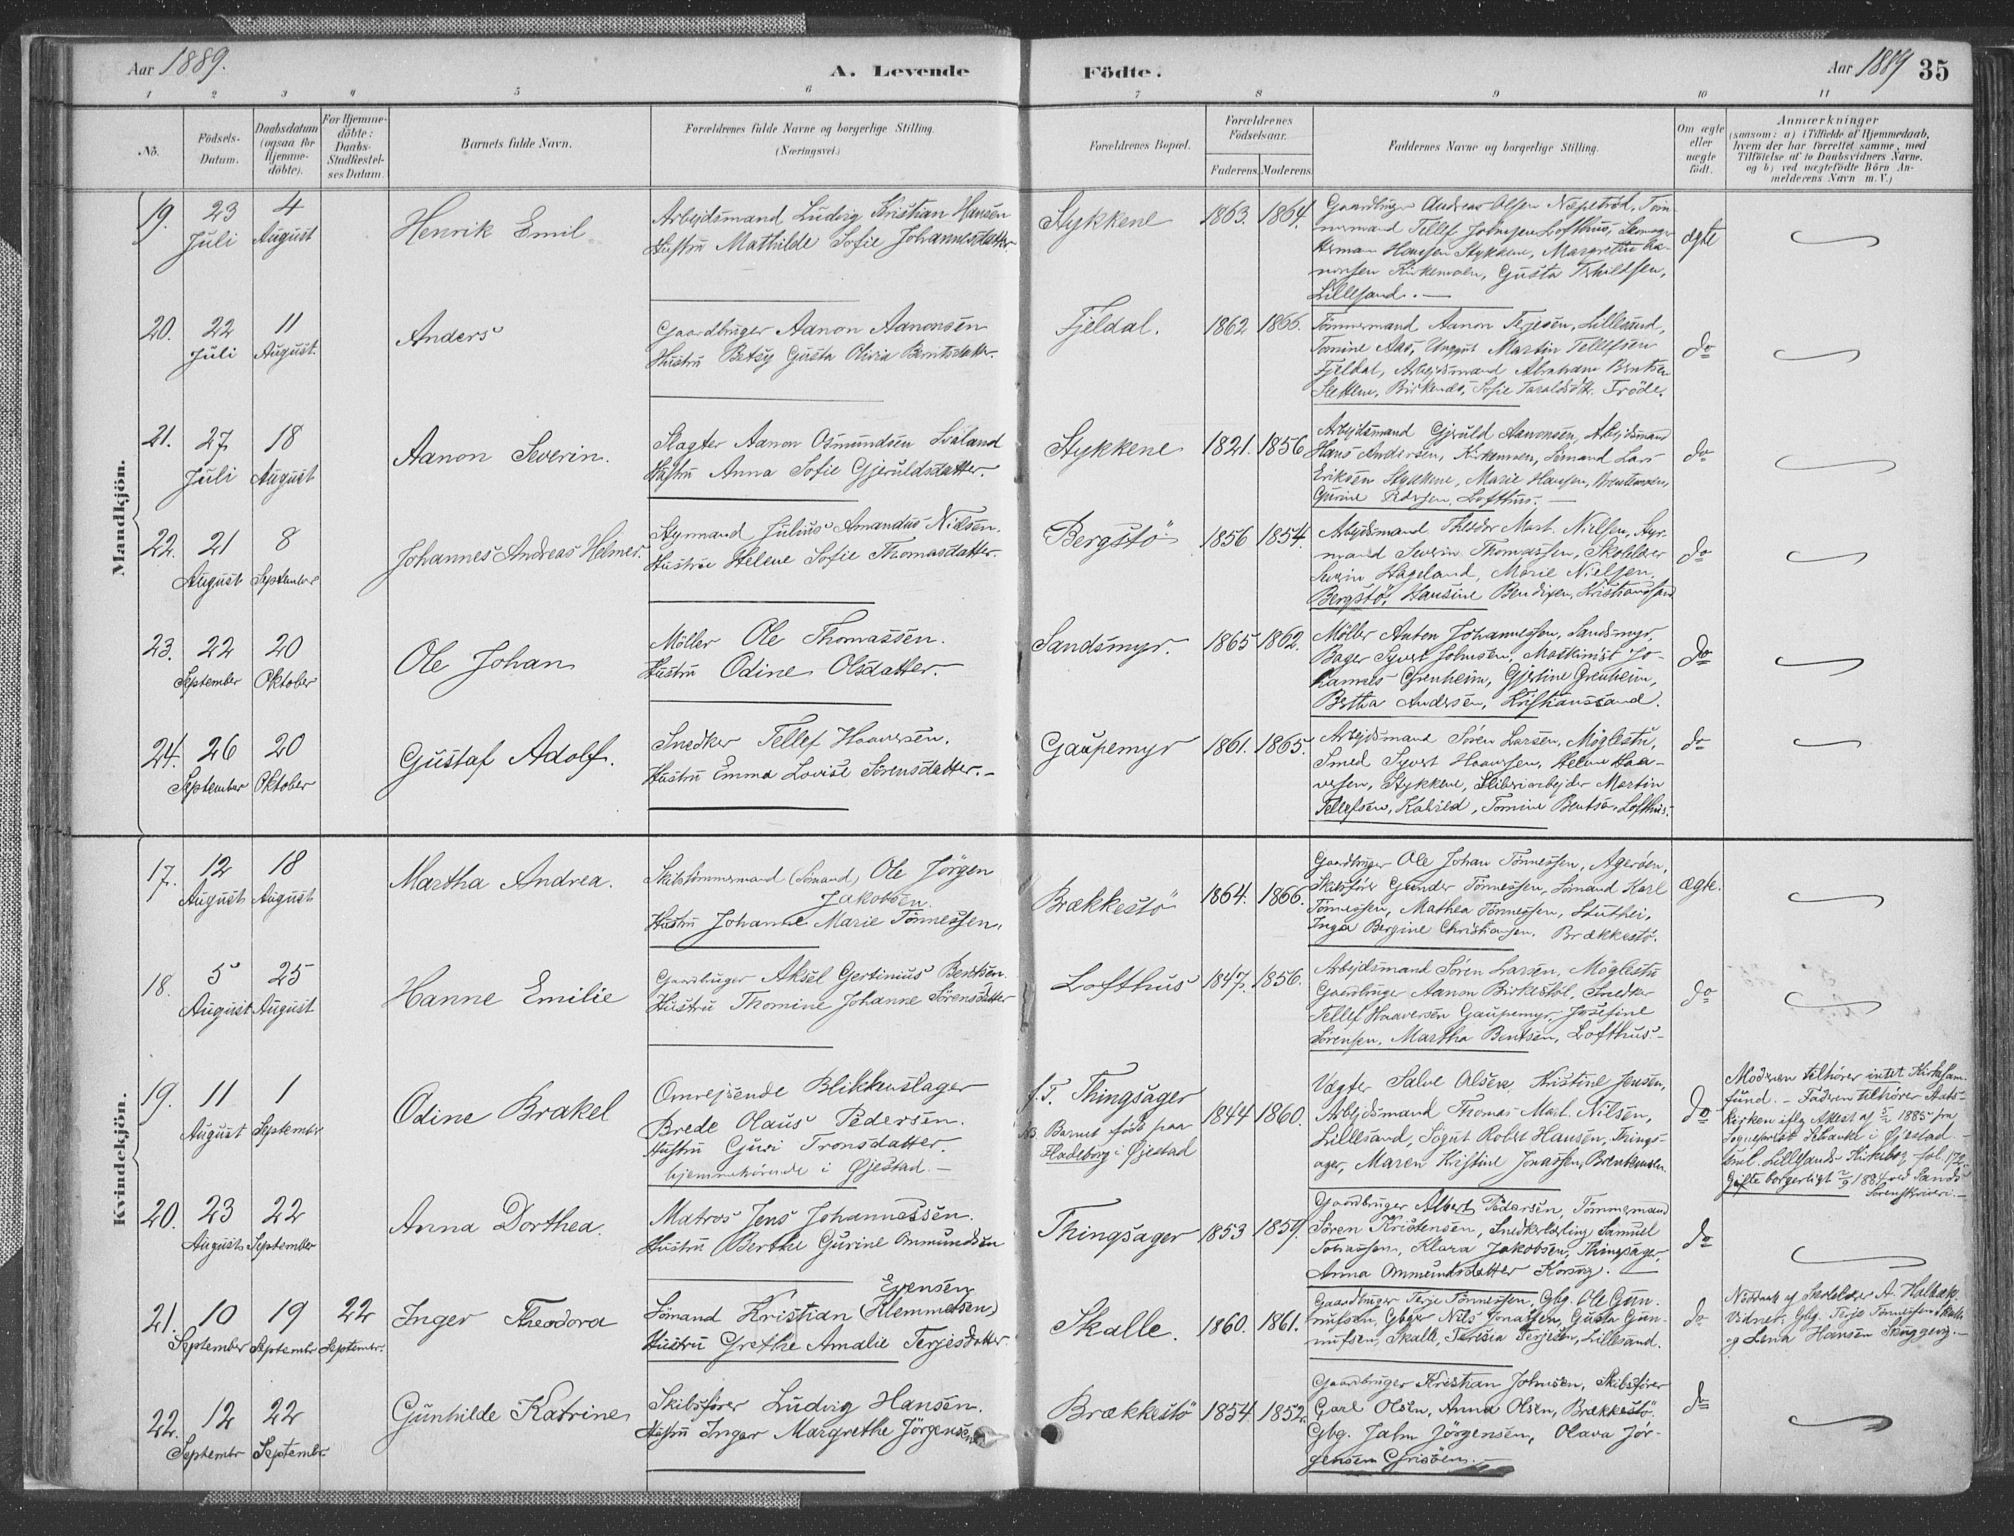 Aar 1889.
A. Levende
Födte.
Aar 1889
35
1 2 3 4 5 6 7 8 9 10 11
No.
Födsels-
Datum.
Daabsdatum
(ogsaa for
Hjemme-
döbte).
For Hjemme-
döbte:
Daabs-
Stadfæstel-
ses Datum.
Barnets fulde Navn.
Forældrenes fulde Navne og borgerlige Stilling.
(Næringsvei.)
Forældrenes Bopæl.
Forældrenes
Födselsaar.
Faderens. Moderens.
Faddernes Navne og borgerlige Stilling.
Om ægte
eller
uægte
födt.
Anmærkninger
(saasom: a) i Tilfælde af Hjemmedaab,
hvem der har forrettet samme, med
Tilföielse af to Daabsvidners Navne,
og b) ved uægtefödte Börn An-
melderens Navn m. V.)
Mandkjön.
19.
23
Juli
4
August
Henrik Emil
Arbejdsmand Ludvig Kristian Hansen
Hustru Mathilde Sofie Johannesdatter
Stykkene
1863. 1864.
Gaardbruger Andreas Olsen
Tellef Johnsen Lofthus,
Herman Hansen Stykkene,
Gusta
Lillesand.
ægte
20.
22
Juli
11
August.
Anders
Gaardbruger Aanon Aanonsen
Hustru Betsy Gusta Olivia Berntsdatter.
Fjeldal.
1862 1866.
Tömmermand Aanon Terjesen, Lillesand,
Tomine Aas, Unggut Martin Tellefsen
Fjeldal, Arbejdsmand Abraham Bentsen
Sofie Taraldsdtr.
do
21.
27
Juli
18
August
Aanon Severin.
Slagter Aanon Osmundsen
Hustru Anna Sofie Gjeruldsdatter.
Stykkene
1821. 1856
Arbejdsmand Gjeruld Aanonsen, Arbejdsmand
Hans Andersen, Sömand Lars
Eriksen Stykkene, Marie Hansen,
Gurine Lofthus.
do
22.
21
August
8
September
Johannes Andreas Helmer.
Styrmand Julius Amandus Nielsen.
Hustru Helene Sofie Thomasdatter.
Bergstö
1856 1854.
Arbejdsmand Theodor Mart. Nielsen, Styr-
mand Severin Thomassen, Skolelærer
Severin Hageland, Marie Nielsen
Bergstö, Hansine Bendixen, Kristianssand
do
23.
22
September
20
Oktober
Ole Johan
Möller Ole Thomassen.
Hustru Odine Olsdatter.
Sandsmyr.
1865 1862.
Möller Anton Johannessen, Sandsmyr,
Bager Syvert Johnsen, Maskinist Jo-
hannes Grenheim, Gjertine Grenheim,
Bertha Andersen, Kristianssand.
do
24.
26
September
20
Oktober
Gustaf Adolf.
Snedker Tellef Haaversen.
Hustru Emma Lovise Sörensdatter.
Gaupemyr
1861. 1865.
Arbejdsmand Sören Larsen, Möglestu,
Smed Syvert Haaversen, Helene Haa-
versen, Stykkene, Sliberiarbejder Martin
Tellefsen, Tomine Bentsen, Lofthus.
do
Kvindekjön.
17.
12
August
18
August
Martha Andrea.
Skibstömmermand (Sömand) Ole Jörgen
Jakobsen.
Hustru Johanne Marie Tönnessen.
Brækkestö
1864. 1866.
Gaardbruger Ole Johan Tönnessen, Ageröen,
Skibsförer Gunder Tönnessen, Sömand Karl
Tönnessen, Mathea Tönnessen,
Inga Bergine Christiansen. Brækkestö.
ægte.
18.
5
August
25
August
Hanne Emilie
Gaardbruger Aksel Gertinius Bentsen.
Hustru Thomine Johanne Sörensdatter
Lofthus
1847. 1856.
Arbejdsmand Sören Larsen, Möglestu
Gaardbruger Aanon Birkestöl, Snedker
Tellef Haaversen Gaupemyr, Josefine
Sörensen, Martha Bentsen, Lofthus.
do
19.
11
August
1
September
Odine Brakel
Omrejsende Blikkenslager
Brede Olaus Pedersen.
Hustru Guri Tronsdatter.
hjemmehörende i Øjestad.
f. T. Thingsager
Barnet födt paa
Hadeborg i Øjestad
1844 1860.
Vægter Salve Olsen, Kristine Jensen,
Arbejdsmand Thomas Mart. Nilsen,
Lillesand, Robert Hansen, Things-
ager, Maren Kristine Jonassen,
do
Moderen tilhører intet Kirkesam-
fund. Faderen tilhører Stats-
kirken iflg Attest af 1885 fra
Sognepræst i Øjestad
Lillesands Kirkebog fol. 172
Gifte borgerligt 1884 ved Sands
Sorenskriveri.
20.
23
August
22
September
Anna Dorthea.
Matros Jens Johannessen.
Hustru Berthe Gurine Ommundsen
Thingsager
1853 1859.
Gaardbruger Albert Pedersen, Tömmermand
Sören Kristensen, Snedkerlærling Samuel
Klara Jakobsen, Thingsager,
Anna Ommundsdatter
do
21.
10
September
19
September
22
September.
Inger Theodora
Evensen
Sömand Kristian (Klemmetsen)
Hustru Grethe Amalie Terjesdatter.
Skalle.
1860. 1861.
Gaardbruger Terje Tönnessen, Gbg. Ole Gun-
nufsen, Gbger Nils Jonassen, Gusta Gun-
nufsen, Skalle, Teresia Terjesen, Lillesand.
do
af Skolelærer A.
Vidner: Gbg. Terje Tönnessen Skalle
og Lena Hansen
22.
12
September
22
September
Gunhilde Katrine
Skibsförer Ludvig Hansen.
Hustru Inger Margrethe Jörgensen
Brækkestö
1854. 1852.
Gaardbruger Kristian Johnsen, Skibsförer
Carl Olsen, Anna Olsen, Brækkestö.
Gbg. Jörgensen, Olava Jör-
gensen
do